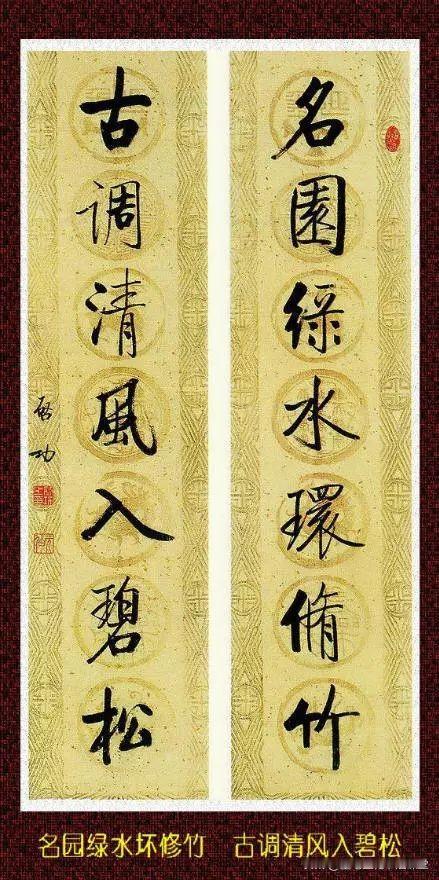 名園緑水環脩竹
古調清風入碧松
啟功
名园绿水坏修竹 古调清风入碧松